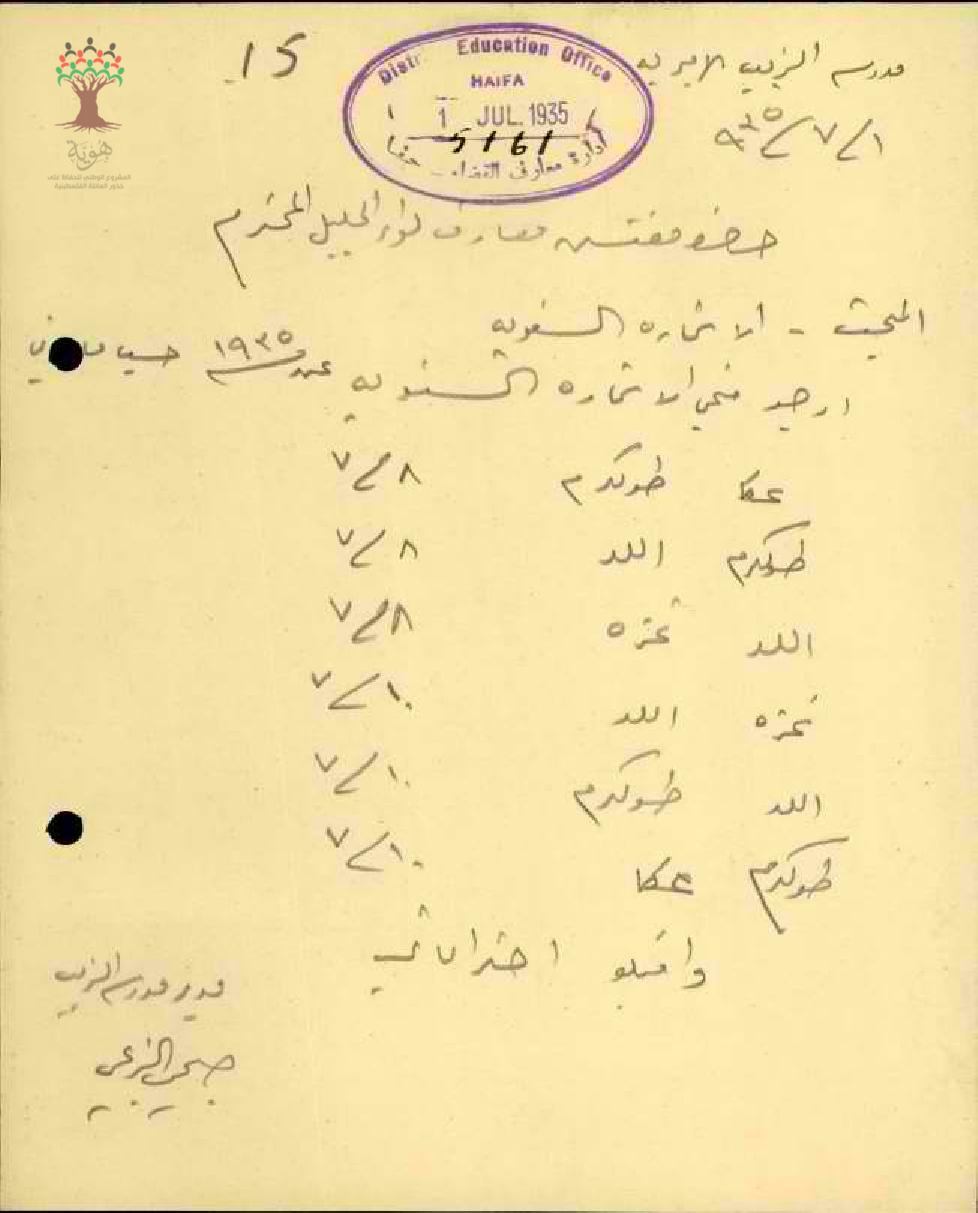 مدرسة الزيب الاميرية
15
٩٣٥/٧/١
District Education Office
HAIFA
1 JUL. 1935
5161
ادارة معارف القضاء حيفا
هوية
المشروع الوطني للحفاظ على
جذور العائلة الفلسطينية
حضرة مفتش معارف لواء الجليل المحترم
المبحث - الاستمارة السنوية
ارجو منحي الاستمارة السنوية عن سنة ١٩٣٥ حسب
عكا طولكرم ٧/٨
طولكرم اللد ٧/٨
اللد غزه ٧/٨
غزه اللد ٧/١٠
اللد طولكرم ٧/١٠
طولكرم عكا ٧/١٠
واقبلو احتراماتي
مدير مدرسة الزيب
صبحي الزعبي